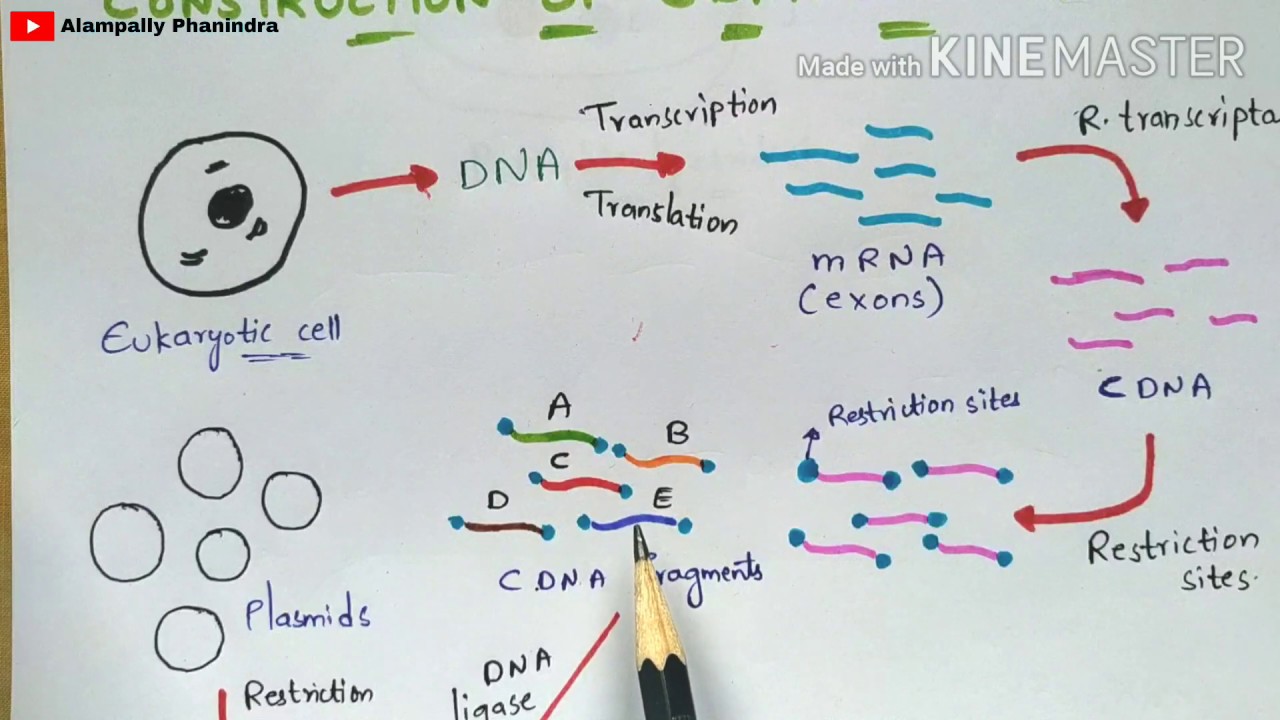 CONSTRUCTION OF
Alampally Phanindra
Made with KINEMASTER
Transcription
R. transcripta
DNA
Translation
mRNA
(exons)
Eukaryotic cell
CDNA
Restriction sites
A
B
C
D
E
C.DNA fragments
Restriction
sites.
Plasmids
DNA
ligase
Restriction